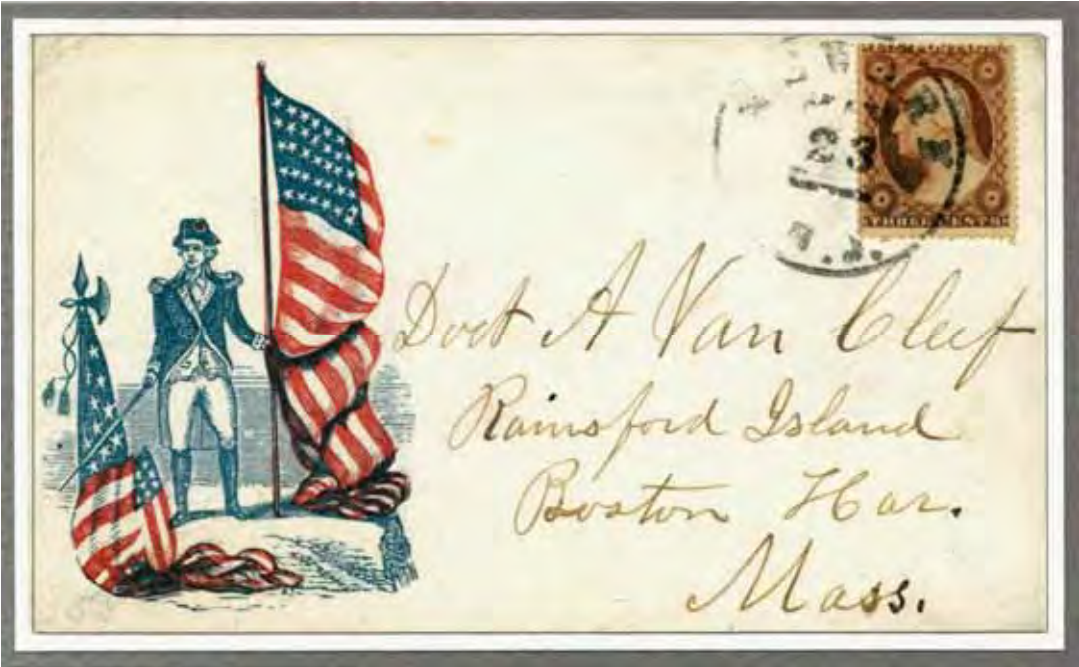 23
THREE CENTS
Doct A Van Cleef
Rainsford Island
Boston Har.
Mass.